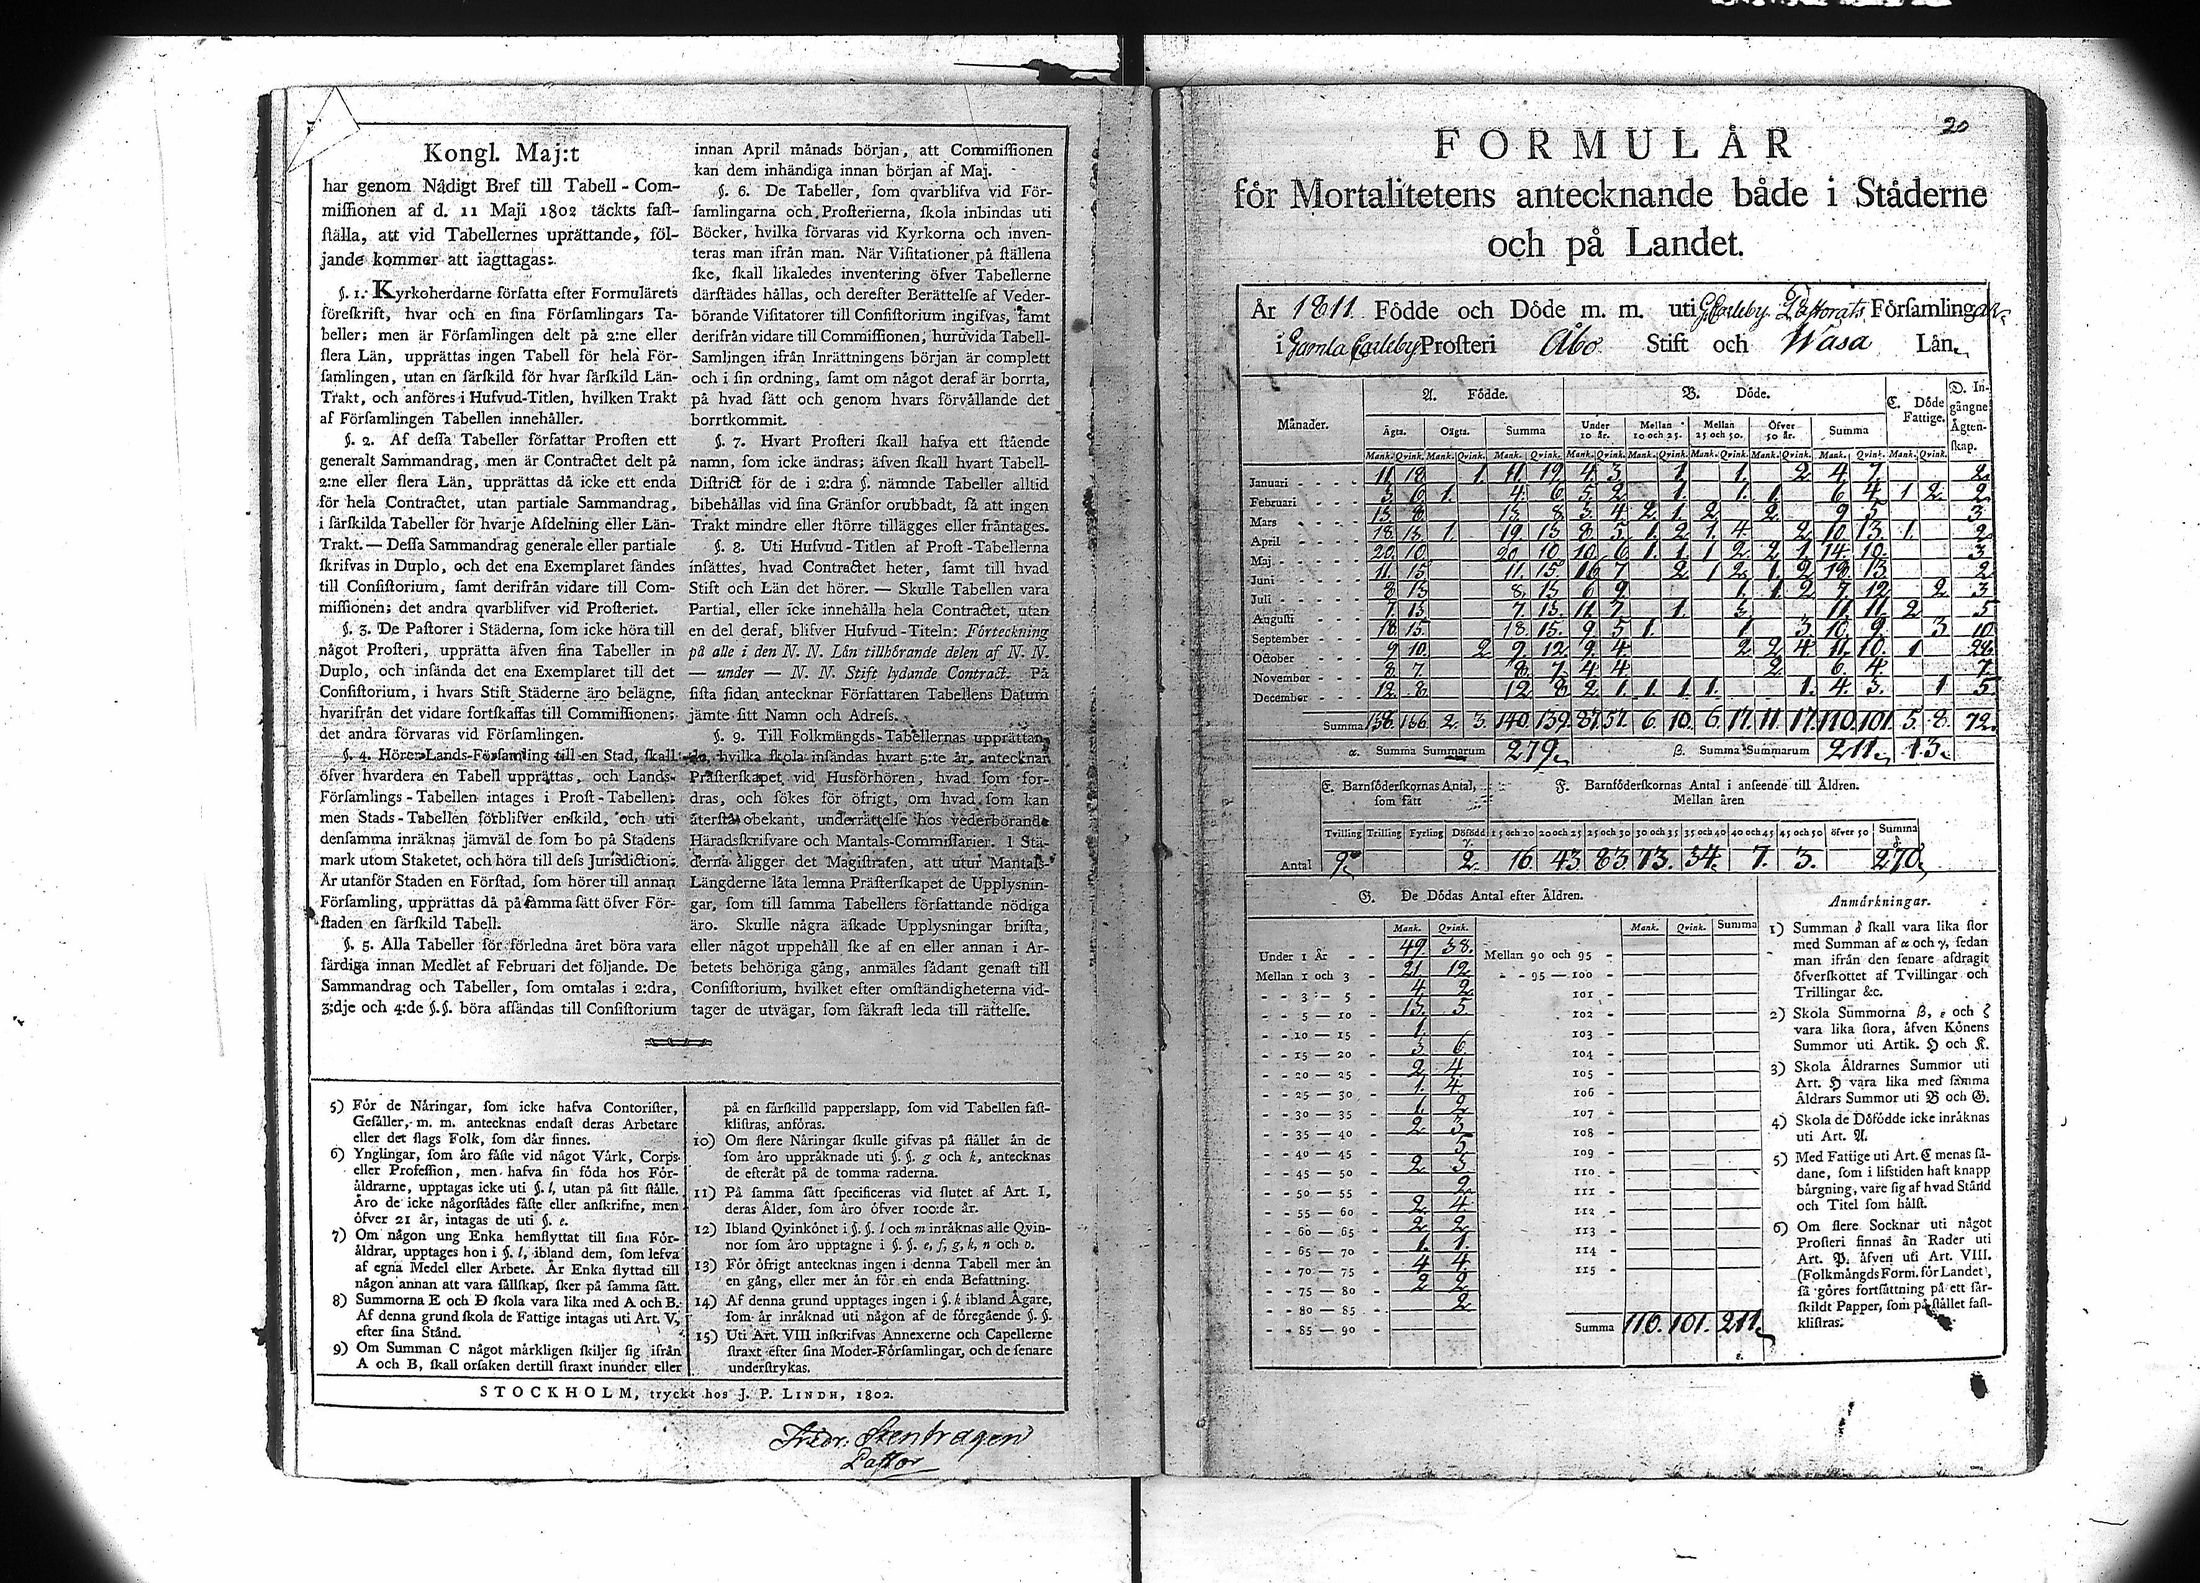 Kongl. Maj:t
har genom Nådigt Bref till Tabell-Com-
miſſionen af d. 11 Maji 1802 täckts faſt-
ſtälla, att vid Tabellernes uprättande, föl-
jande kommer att iagttagas:
§. 1. Kyrkoherdarne författa efter Formulärets
föreſkrift, hvar och en ſina Förſamlingars Ta-
beller; men är Förſamlingen delt på 2:ne eller
flera Län, upprättas ingen Tabell för hela För-
ſamlingen, utan en färſkild för hvar färſkild Län-
Trakt, och anföres i Hufvud-Titlen, hvilken Trakt
af Förſamlingen Tabellen innehåller.
§. 2. Af deſſa Tabeller författar Proſten ett
generalt Sammandrag, men är Contractet delt på
2:ne eller flera Län, upprättas då icke ett enda
för hela Contractet, utan partiale Sammandrag,
i färſkilda Tabeller för hvarje Afdelning eller Län-
Trakt. — Deſſa Sammandrag generale eller partiale
ſkrifvas in Duplo, och det ena Exemplaret ſändes
till Conſiſtorium, ſamt derifrån vidare till Com-
miſſionen; det andra qvarblifver vid Proſteriet.
§. 3. De Paſtorer i Städerna, ſom icke höra till
något Proſteri, upprätta äfven ſina Tabeller in
Duplo, och inſända det ena Exemplaret till det
Conſiſtorium, i hvars Stift Städerne äro belägne,
hvarifrån det vidare fortſkaffas till Commiſſionen;
det andra förvaras vid Förſamlingen.
§. 4. Hörer Lands-Förſamling till en Stad, ſkall
öfver hvardera en Tabell upprättas, och Lands-
Förſamlings-Tabellen intages i Proſt-Tabellen;
men Stads-Tabellen förblifver enſkild, och uti
denſamma inräknas jämväl de ſom bo på Stadens
mark utom Staketet, och höra till deſs Jurisdiction.
Är utanför Staden en Förſtad, ſom hörer till annan
Förſamling, upprättas då på ſamma ſätt öfver För-
ſtaden en färſkild Tabell.
§. 5. Alla Tabeller för förledna året böra vara
färdiga innan Medlet af Februari det följande. De
Sammandrag och Tabeller, ſom omtalas i 2:dra,
3:dje och 4:de §.§. böra afſändas till Conſiſtorium
innan April månads början, att Commiſſionen
kan dem inhändiga innan början af Maj.
§. 6. De Tabeller, ſom qvarblifva vid För-
ſamlingarna och Proſterierna, ſkola inbindas uti
Böcker, hvilka förvaras vid Kyrkorna och inven-
teras man ifrån man. När Viſitationer på ſtällena
ſke, ſkall likaledes inventering öfver Tabellerne
därſtädes hållas, och derefter Berättelſe af Veder-
börande Viſitatorer till Conſiſtorium ingifvas, ſamt
derifrån vidare till Commiſſionen, huruvida Tabell-
Samlingen ifrån Inrättningens början är complett
och i ſin ordning, ſamt om något deraf är borrta,
på hvad ſätt och genom hvars förvållande det
borrtkommit.
§. 7. Hvart Proſteri ſkall hafva ett ſtående
namn, ſom icke ändras; äfven ſkall hvart Tabell-
Diſtrict för de i 2:dra §. nämnde Tabeller alltid
bibehållas vid ſina Gränſor orubbadt, ſå att ingen
Trakt mindre eller ſtörre tillägges eller fråntages.
§. 8. Uti Hufvud-Titlen af Proſt-Tabellerna
inſättes, hvad Contractet heter, ſamt till hvad
Stift och Län det hörer. — Skulle Tabellen vara
Partial, eller icke innehålla hela Contractet, utan
en del deraf, blifver Hufvud-Titeln: Förteckning
på alle i den N. N. Län tillhörande delen af N. N.
— under — N. N. Stift lydande Contract. På
ſiſta ſidan antecknar Författaren Tabellens Datum
jämte ſitt Namn och Adreſs.
§. 9. Till Folkmängds-Tabellernas upprättan-
de, hvilka ſkola inſändas hvart 5:te år, antecknar
Präſterſkapet vid Husförhören, hvad ſom for-
dras, och ſökes för öfrigt, om hvad ſom kan
återſtå obekant, underrättelſe hos vederbörande
Häradsſkrifvare och Mantals-Commiſſarier. I Stä-
derna åligger det Magiſtraten, att utur Mantals-
Längderne låta lemna Präſterſkapet de Upplysnin-
gar, ſom till ſamma Tabellers författande nödiga
äro. Skulle några äſkade Upplysningar briſta,
eller något uppehåll ſke af en eller annan i Ar-
betets behöriga gång, anmäles ſådant genaſt till
Conſiſtorium, hvilket efter omſtändigheterna vid-
tager de utvägar, ſom ſäkraſt leda till rättelſe.
5) För de Näringar, ſom icke hafva Contoriſter,
Geſäller, m. m. antecknas endaſt deras Arbetare
eller det ſlags Folk, ſom där finnes.
6) Ynglingar, ſom äro fäſte vid något Värk, Corps
eller Profeſſion, men hafva ſin föda hos För-
äldrarne, upptagas icke uti §. l, utan på ſitt ſtälle.
Äro de icke någorſtädes fäſte eller anſkrifne, men
öfver 21 år, intagas de uti §. e.
7) Om någon ung Enka hemflyttat till ſina För-
äldrar, upptages hon i §. l, ibland dem, ſom lefva
af egna Medel eller Arbete. Är Enka flyttad till
någon annan att vara ſällſkap, ſker på ſamma ſätt.
8) Summorna E och D ſkola vara lika med A och B.
Af denna grund ſkola de Fattige intagas uti Art. V,
efter ſina Stånd.
9) Om Summan C något märkligen ſkiljer ſig ifrån
A och B, ſkall orſaken dertill ſtraxt inunder eller
på en färſkilld papperslapp, ſom vid Tabellen faſt-
kliſtras, anföras.
10) Om flere Näringar ſkulle gifvas på ſtället än de
ſom äro uppräknade uti §. §. g och k, antecknas
de efteråt på de tomma raderna.
11) På ſamma ſätt ſpecificeras vid ſlutet af Art. I,
deras Ålder, ſom äro öfver 100:de år.
12) Ibland Qvinkönet i §. §. l och m inräknas alle Qvin-
nor ſom äro upptagne i §. §. e, f, g, k, n och o.
13) För öfrigt antecknas ingen i denna Tabell mer än
en gång, eller mer än för en enda Befattning.
14) Af denna grund upptages ingen i §. k ibland Ägare,
ſom är inräknad uti någon af de föregående §. §.
15) Uti Art. VIII inſkrifvas Annexerne och Capellerne
ſtraxt efter ſina Moder-Förſamlingar, och de ſenare
underſtrykas.
STOCKHOLM, tryckt hos J. P. LINDH, 1802.
Fridr. Stenhagen
Paſtor
20
FORMULÄR
för Mortalitetens antecknande både i Städerne
och på Landet.
År 1811. Födde och Döde m. m. uti G. Carleby Paſtorats Förſamlingar
i Gamla Carleby Proſteri Åbo Stift och Wasa Län.
Månader. A. Födde. B. Döde. C. Döde Fattige. D. Ingångne Ägtenſkap.
Ägta. Oägta. Summa Under 10 år. Mellan 10 och 25. Mellan 25 och 50. Öfver 50 år. Summa
Mank. Qvink. Mank. Qvink. Mank. Qvink. Mank. Qvink. Mank. Qvink. Mank. Qvink. Mank. Qvink. Mank. Qvink. Mank. Qvink.
Januari 11 18 1. 11. 19 4. 3 1. 1. 2 4. 7. 2
Februari 3 6 1. 4. 6 5. 2 1. 1. 1. 6 4. 1 2. 2
Mars 13 8 13. 8 3. 4 2. 1. 2 2. 9 5 3
April 18 13. 1. 19 13 8 5. 1. 2 1. 4. 2 10. 13. 1. 2
Maj 20 10 20 10 10 6 1. 1. 1 2 2 1. 14. 10. 3
Juni 11. 15 11. 15 16 7 2 1 2 1. 2 19 13 2
Juli 8 13 8. 13 6 9 1. 1. 2 7. 12 2 3
Auguſti 7. 13 7. 13. 11. 7 1. 3 11. 11. 2 5
September 18. 15. 18. 15. 9 5 1. 1 3 10. 9. 3 10
October 9 10. 2 9. 12. 9 4. 2 2 4. 11. 10. 1 28
November 8 7. 8 7 4 4 2. 6 4. 7
December 12 8 12 8 2 1. 1. 1. 1. 1. 4. 3. 1 5
Summa 138 136 2. 3 140 139 87 57. 6. 10. 6 17. 11. 17. 110. 101. 5. 8. 72.
α. Summa Summarum 279 β. Summa Summarum 211 13.
E. Barnföderſkornas Antal, ſom fått F. Barnföderſkornas Antal i anſeende till Åldren.
Mellan åren
Tvilling Trilling Fyrling Döfödd γ. 15 och 20 20 och 25 25 och 30 30 och 35 35 och 40 40 och 45 45 och 50 öfver 50 Summa δ
Antal 9 2. 16. 43. 83 73. 34. 7. 3. 270.
G. De Dödas Antal efter Åldren.
Mank. Qvink. Mank. Qvink. Summa
Under 1 År 49. 38. Mellan 90 och 95
Mellan 1 och 3 21. 12 95 — 100
3 — 5 4. 2 101
5 — 10 13. 5 102
10 — 15 1. 103
15 — 20 3 6. 104
20 — 25 2 4. 105
25 — 30 1. 4. 106
30 — 35 1. 2 107
35 — 40 2 3 108
40 — 45 5 109
45 — 50 2 3 110
50 — 55 2 111
55 — 60 2 4 112
60 — 65 2 2 113
65 — 70 1. 1. 114
70 — 75 4 4 115
75 — 80 2 2
80 — 85 2
85 — 90
Summa 110. 101. 211.
Anmärkningar.
1) Summan δ ſkall vara lika ſtor
med Summan af α och γ, ſedan
man ifrån den ſenare afdragit
öfverſkottet af Tvillingar och
Trillingar &c.
2) Skola Summorna β, ε och ζ
vara lika ſtora, äfven Könens
Summor uti Artik. H och K.
3) Skola Åldrarnes Summor uti
Art. H vara lika med ſamma
Åldrars Summor uti B och G.
4) Skola de Döfödde icke inräknas
uti Art. A.
5) Med Fattige uti Art. C menas ſå-
dane, ſom i lifstiden haft knapp
bärgning, vare ſig af hvad Stånd
och Titel ſom hälſt.
6) Om flere Socknar uti något
Proſteri finnas än Rader uti
Art. P. äfven uti Art. VIII.
(Folkmängds Form. för Landet),
ſå göres fortſättning på ett ſär-
ſkildt Papper, ſom på ſtället faſt-
kliſtras.